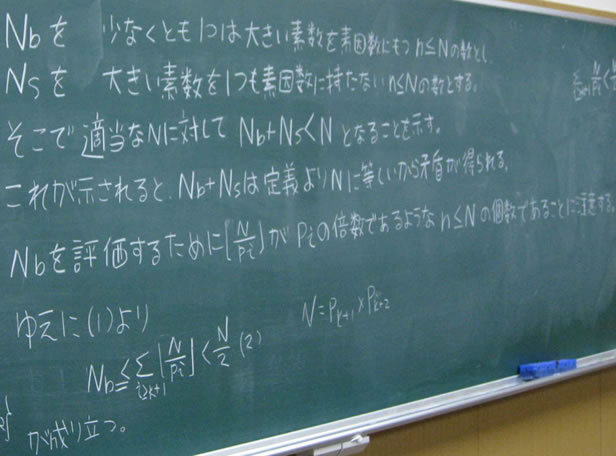 Nbを 少なくとも1つは大きい素数を素因数にもつn≤Nの数とし
Nsを 大きい素数を1つも素因数に持たないn≤Nの数とする。
そこで適当なNに対して Nb+Ns<N となることを示す。
これが示されると、Nb+Nsは定義よりNに等しいから矛盾が得られる。
Nbを評価するために[N/pi]がPiの倍数であるようなn≤Nの個数であることに注意する。
ゆえに(1)より
N=Pk+1×Pk+2
Nb≤∑i≥k+1[N/pi]<N/2 (2)
が成り立つ。